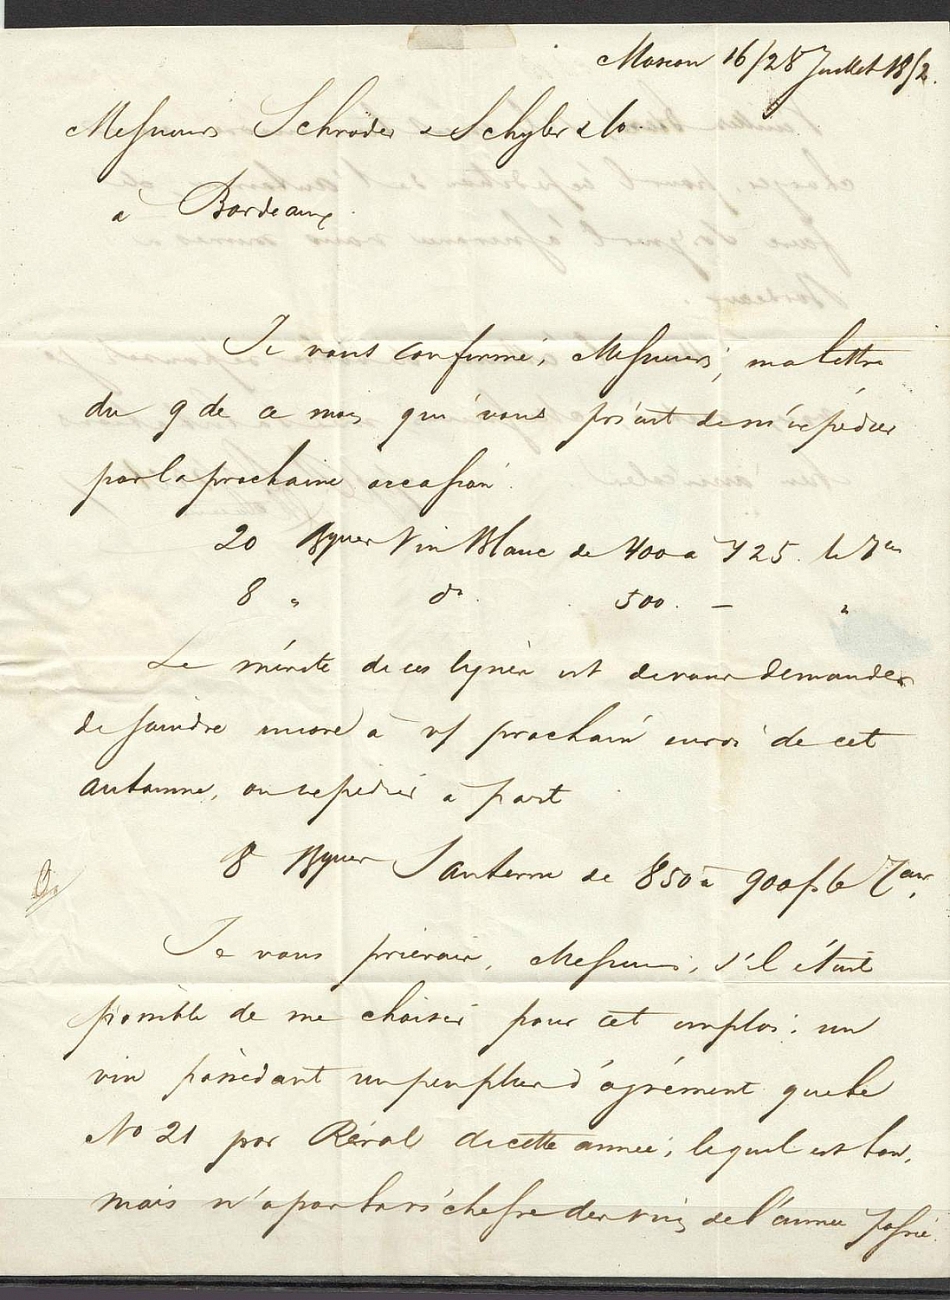 Moscou 16/28 Juillet 18
Messieurs Schröder & Schyler & Co.
à Bordeaux.
Je vous confirme, Messieurs, ma lettre
du 9 de ce mois qui vous priait de m'expédier
par la prochaine occasion
20 Bques Vin Blanc de 400 a 425. le
8 " do. 500. — "
Le mérite de ces lignes est de vous demander
de joindre encore à prochain envoi de cet
automne, ou expédier à part
8 Bques Sauterne de 850 a 900 fs le
Je vous prierais, Messieurs, s'il était
possible de me choisir pour cet emploi: un
vin possédant un peu plus d'agrément que le
No 21 par Réval de cette année; lequel est bon,
mais n'a pas la richesse des vins de l'année passée.